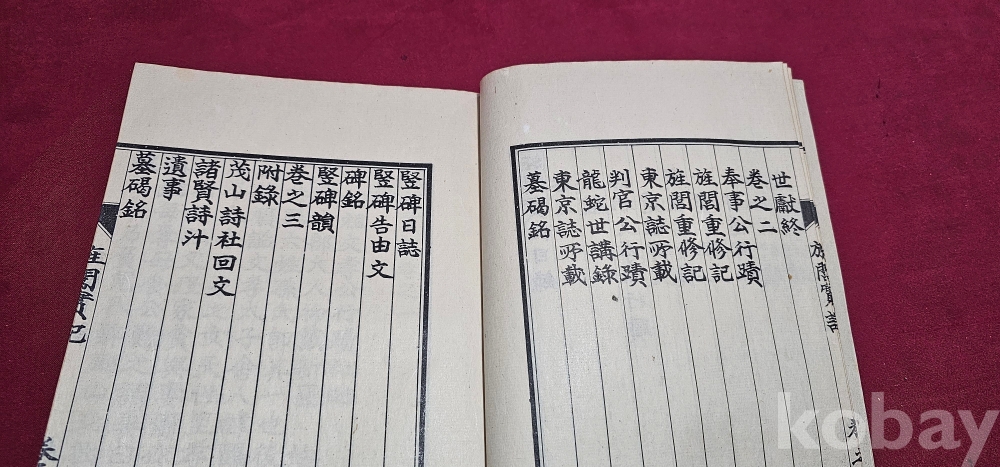 旌閭實記
世獻終
卷之二
奉事公行蹟
旌閭重修記
旌閭重修記
東京誌所載
判官公行蹟
龍蛇世講錄
東京誌所載
墓碣銘
竪碑日誌
竪碑告由文
碑銘
竪碑韻
卷之三
附錄
茂山詩社回文
諸賢詩汁
遺事
墓碣銘
旌閭實記
kobay